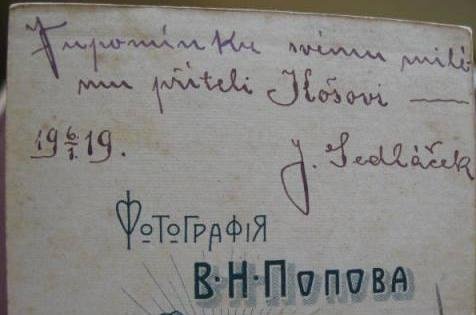 Vupomínku svému milé
mu příteli Kóšovi —
19 6/1. 19.
J. Sedláček
ФОТОГРАФІЯ
В·Н·ПОПОВА